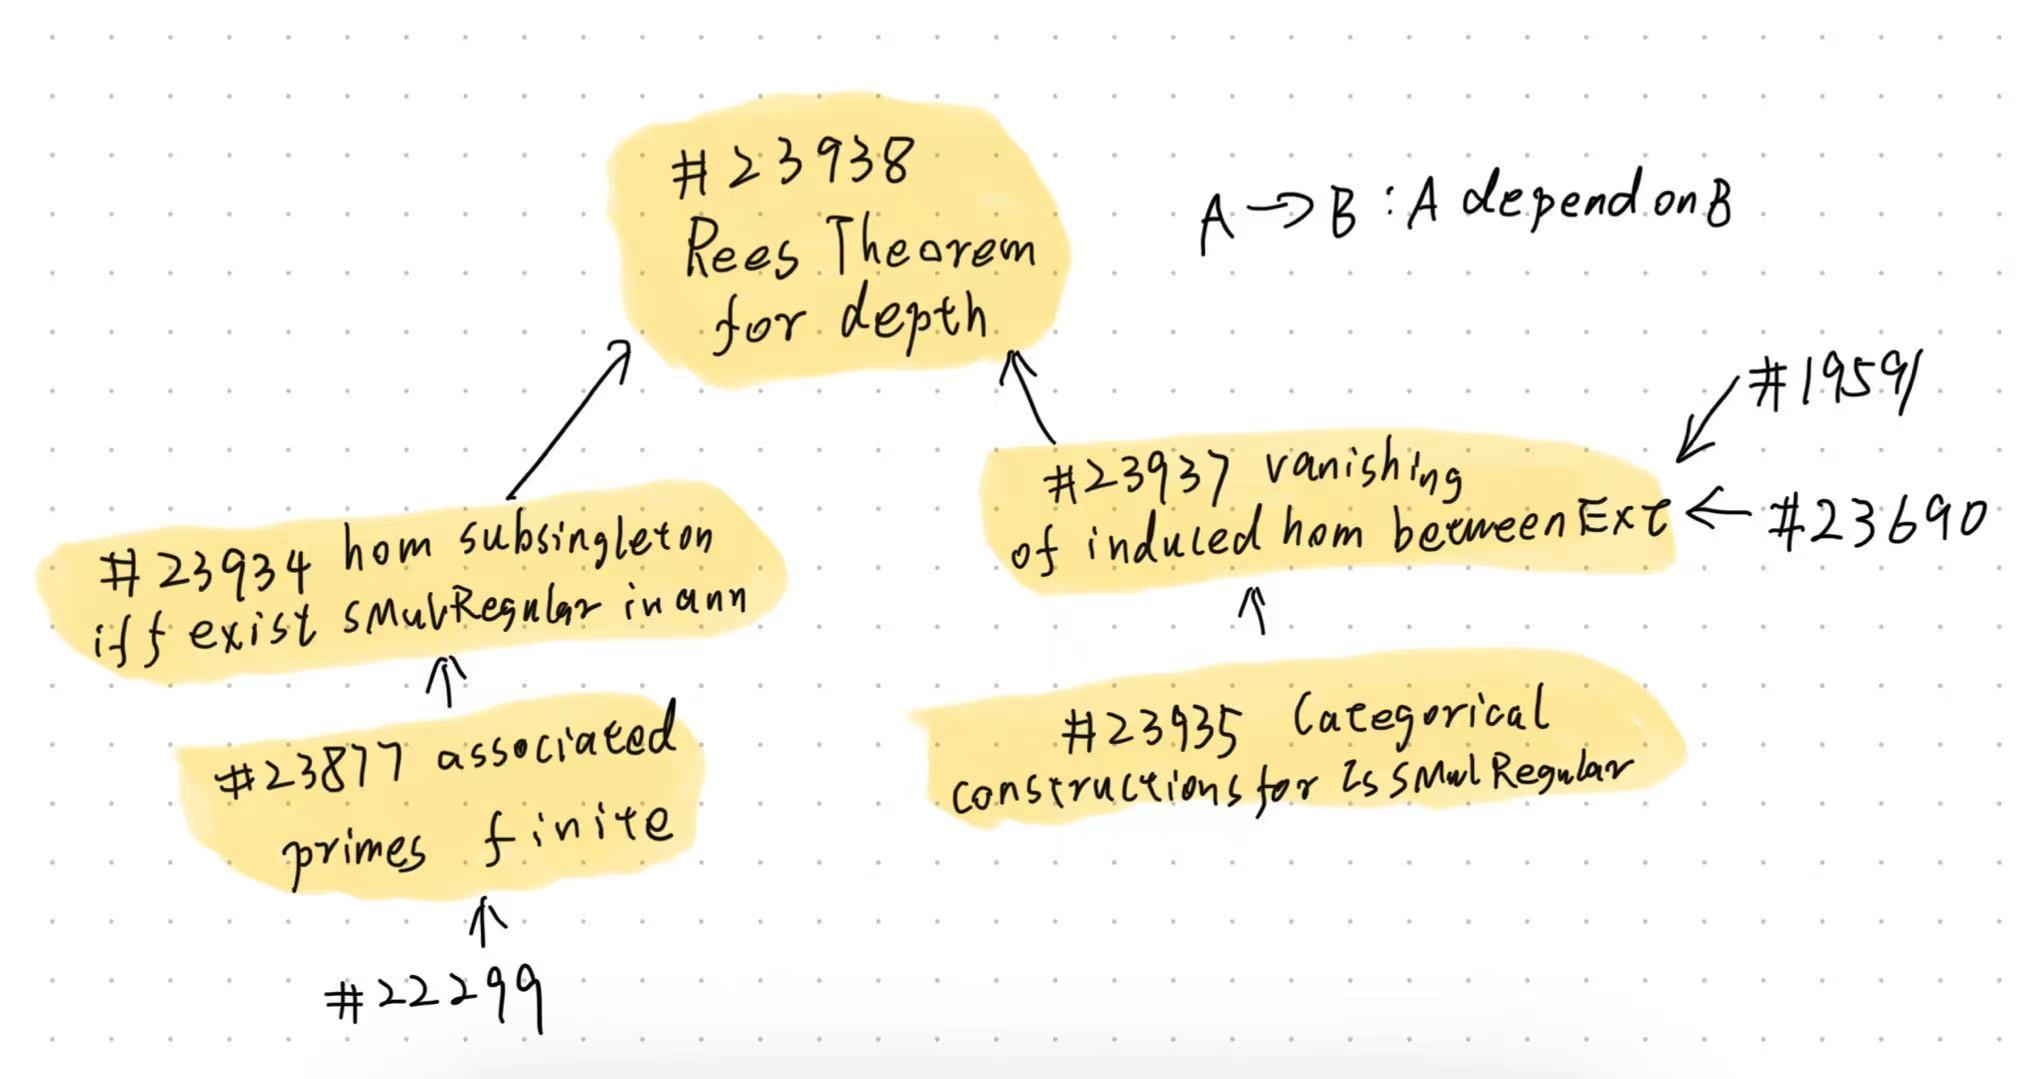 #23938
Rees Theorem
for depth
A → B : A depend on B
#19591
#23937 vanishing
of induced hom between Ext
#23690
#23934 hom subsingleton
iff exist sMulRegular in ann
#23877 associated
primes finite
#23935 Categorical
constructions for IsSMulRegular
#22299